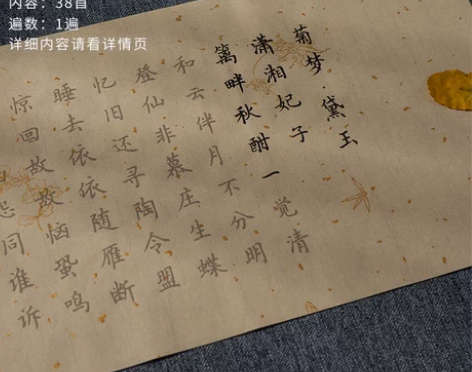 内容：38首
遍数：1遍
详细内容请看详情页
菊梦 黛玉
潇湘妃子
篱畔秋酣一觉清
和云伴月不分明
登仙非慕庄生蝶
忆旧还寻陶令盟
睡去依依随雁断
惊回故故恼蛩鸣
怨同谁诉